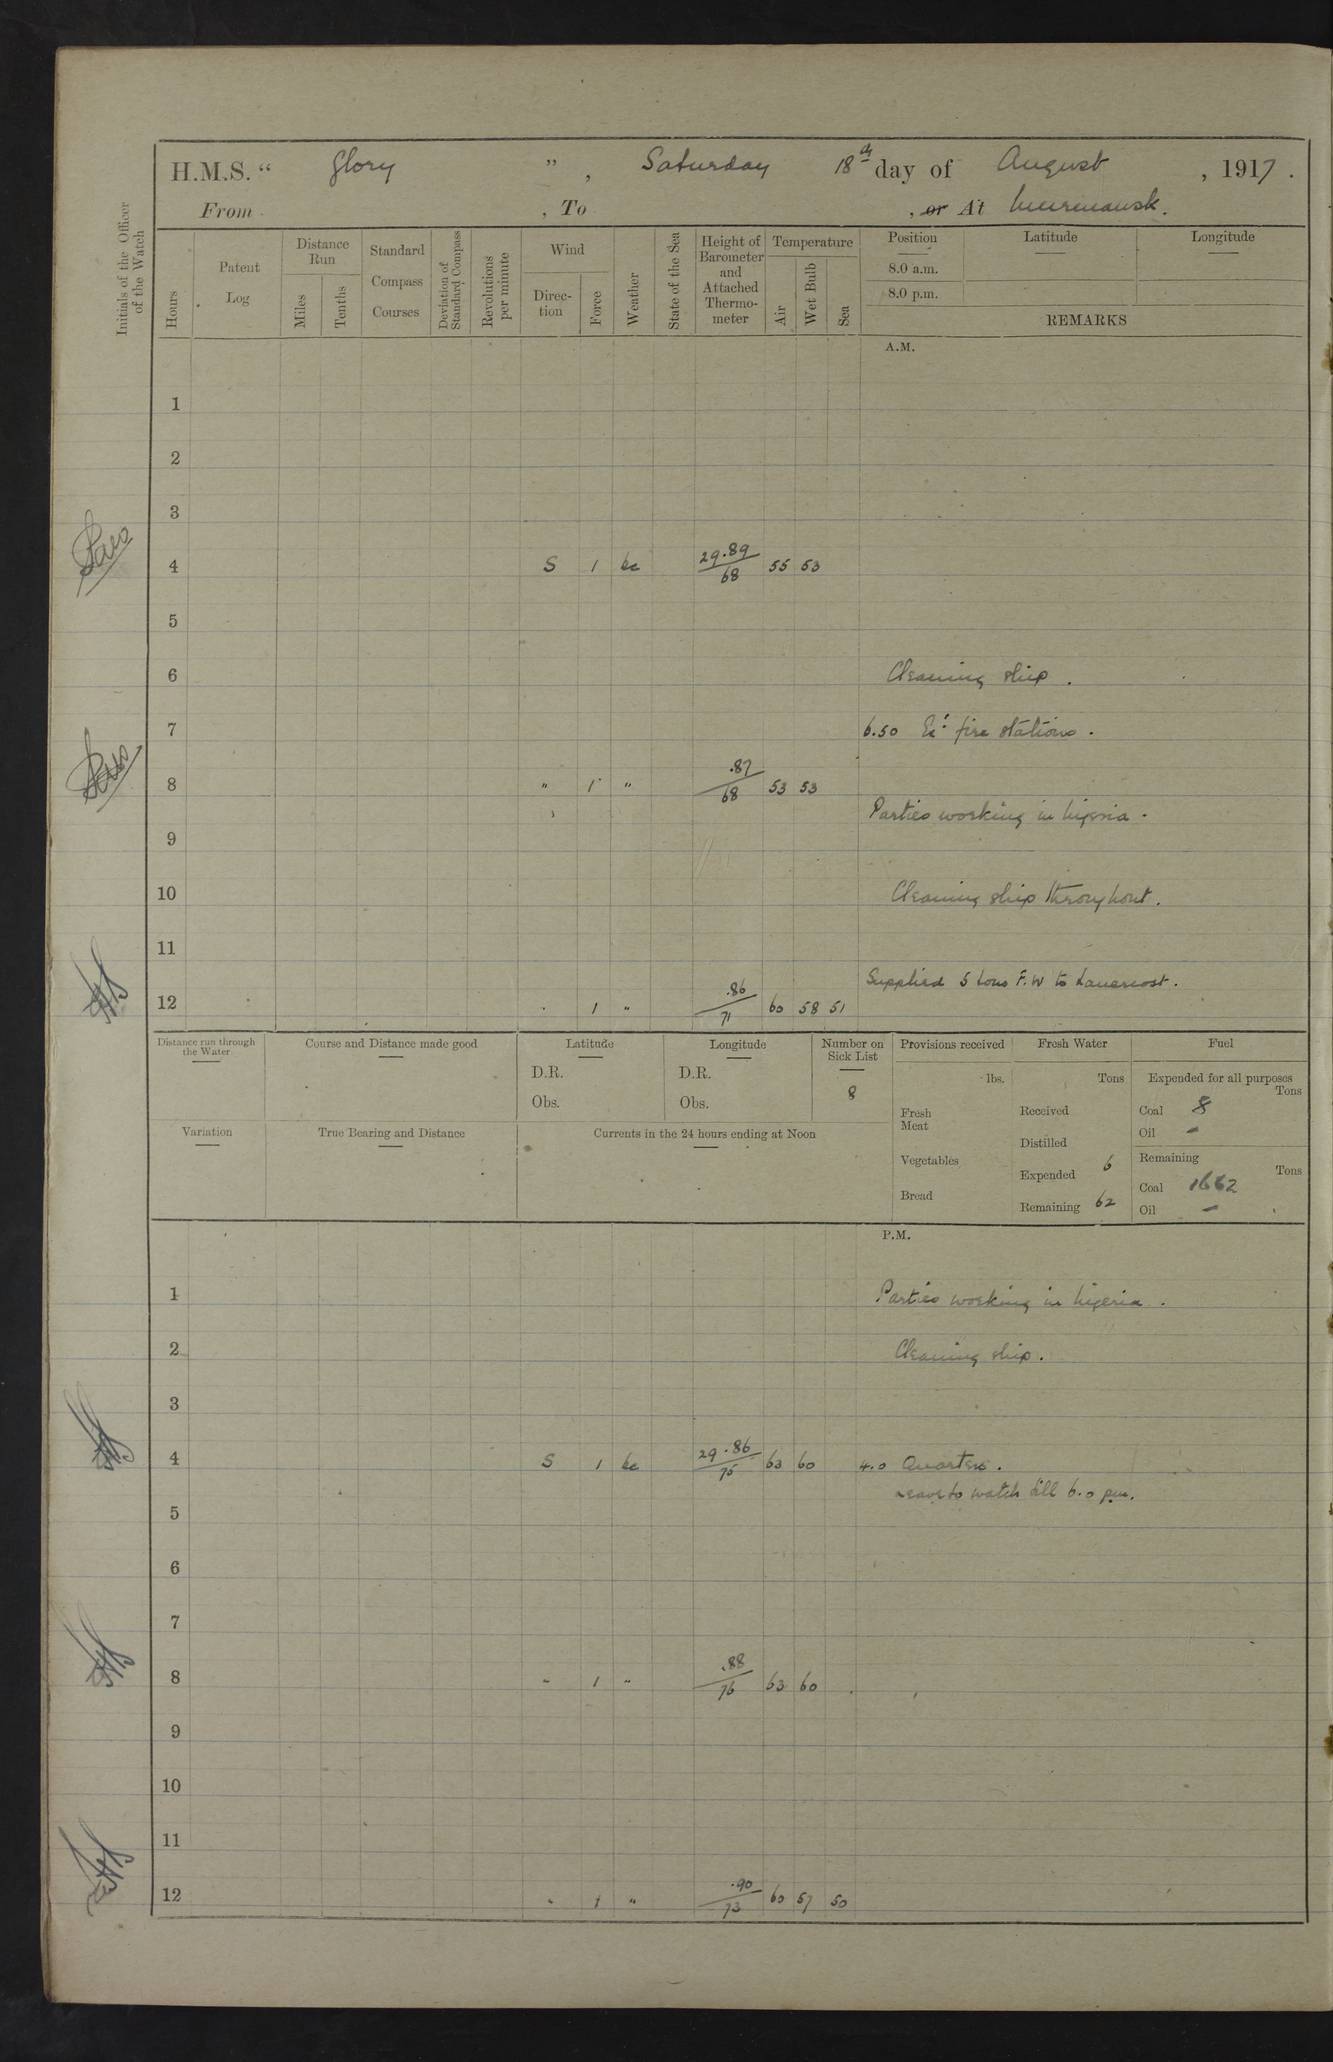 H.M.S. “ Glory ” , Saturday 18th day of August , 1917 .
From , To , or At Murmansk.
Initials of the Officer of the Watch
Hours
Patent Log
Distance Run
Miles
Tenths
Standard Compass Courses
Deviation of Standard Compass
Revolutions per minute
Wind
Direction
Force
Weather
State of the Sea
Height of Barometer and Attached Thermometer
Temperature
Air
Wet Bulb
Sea
Position Latitude Longitude
8.0 a.m.
8.0 p.m.
REMARKS
A.M.
1
2
3
4 S 1 bc 29.89/68 55 53
5
6 Cleaning ship .
7 6.50 Ex: fire stations .
8 " 1 " .87/68 53 53
Parties working in Nigeria .
9
10 Cleaning ship throughout .
11
Supplied 5 tons F.W to Lanercost .
12 " 1 " .86/71 60 58 51
Distance run through the Water
Course and Distance made good
Latitude
D.R.
Obs.
Longitude
D.R.
Obs.
Number on Sick List
8
Provisions received
lbs.
Fresh Meat
Vegetables
Bread
Fresh Water
Tons
Received
Distilled
Expended 6
Remaining 62
Fuel
Expended for all purposes
Tons
Coal 8
Oil —
Remaining
Tons
Coal 1662
Oil —
Variation
True Bearing and Distance
Currents in the 24 hours ending at Noon
P.M.
1 Parties working in Nigeria .
2 Cleaning ship .
3
4 S 1 bc 29.86/75 63 60 4.0 Quarters .
Leave to watch till 6.0 pm.
5
6
7
8 " 1 " .88/76 63 60
9
10
11
12 " 1 " .90/73 60 57 50